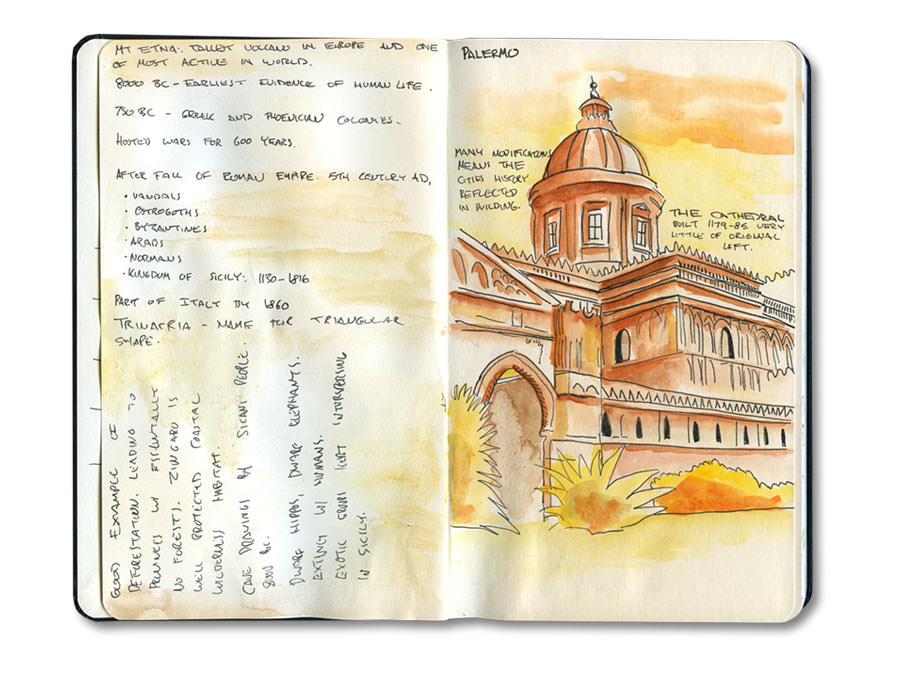 MT ETNA. TALLET VOLCANO IN EUROPE AND ONE
OF MOST ACTIVE IN WORLD.
8000 BC - EARLIEST EVIDENCE OF HUMAN LIFE.
750 BC - GREEK AND PHOENICIAN COLONIES.
HOSTED WARS FOR 600 YEARS.
AFTER FALL OF ROMAN EMPIRE. 5TH CENTURY AD,
• VANDALS
• OSTROGOTHS
• BYZANTINES
• ARABS
• NORMANS
• KINGDOM OF SICILY. 1130-1816
PART OF ITALY BY 1860
TRINATRIA - NAME FOR TRIANGULAR
SHAPE.
GOOD EXAMPLE OF
DEFORESTATION. LEADING TO
PROVINCES W/ ESSENTIALLY
NO FORESTS. ZINGARO IS
WELL PROTECTED COASTAL
WILDERNESS HABITAT.
CAVE DRAWINGS BY SICANI PEOPLE.
8000 BC.
DWARF HIPPOS, DWARF ELEPHANTS.
EXISTING W/ HUMANS.
EXOTIC
IN SICILY.
PALERMO
MANY MODIFICATIONS
MEANS THE
CITIES HISTORY
REFLECTED
IN BUILDING.
THE CATHEDRAL
BUILT 1179-85. VERY
LITTLE OF ORIGINAL
LEFT.